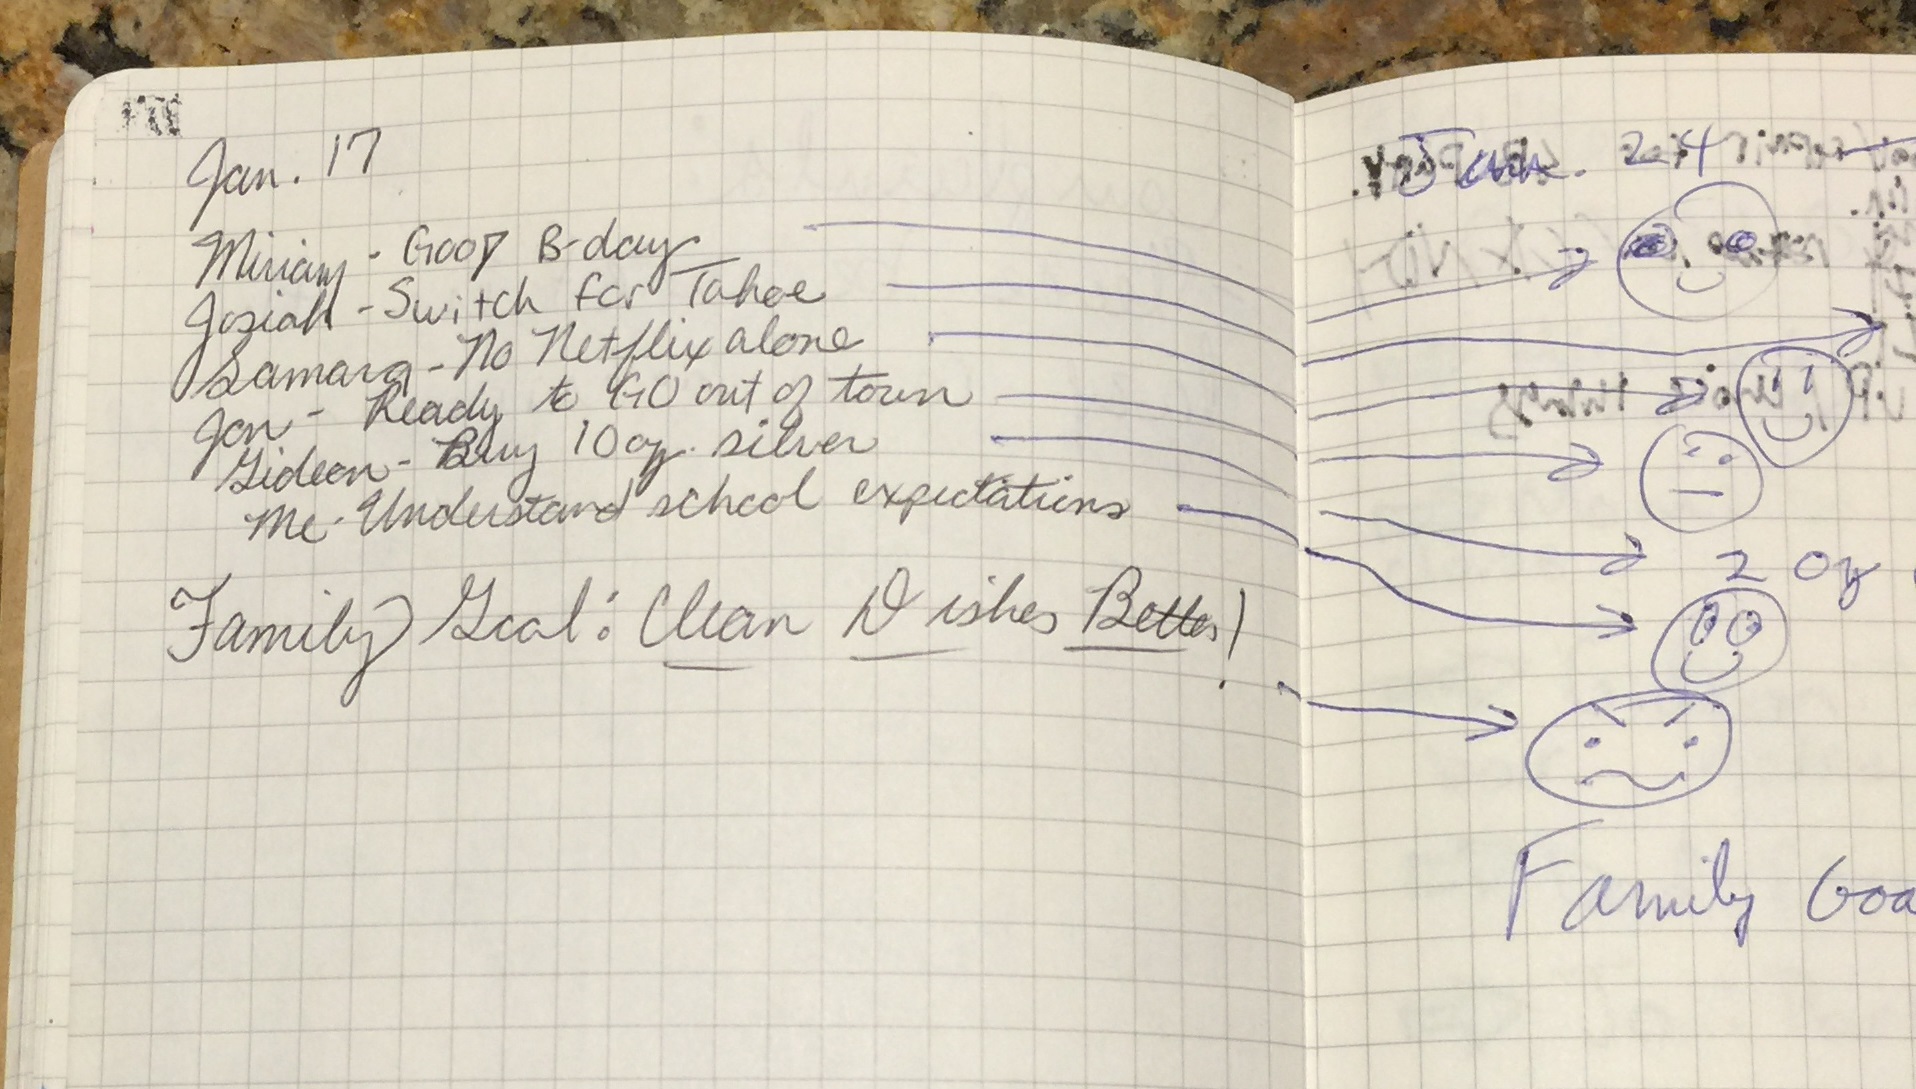 Jan. 17
Miriam - Good B-day
Josiah - Switch for Tahoe
Samara - No Netflix alone
Jon - Ready to GO out of town
Gideon - Buy 10 oz. silver
Me - Understand school expectations
Family Goal: Clean Dishes Better!
Jan. 24
2 oz
Family Goa